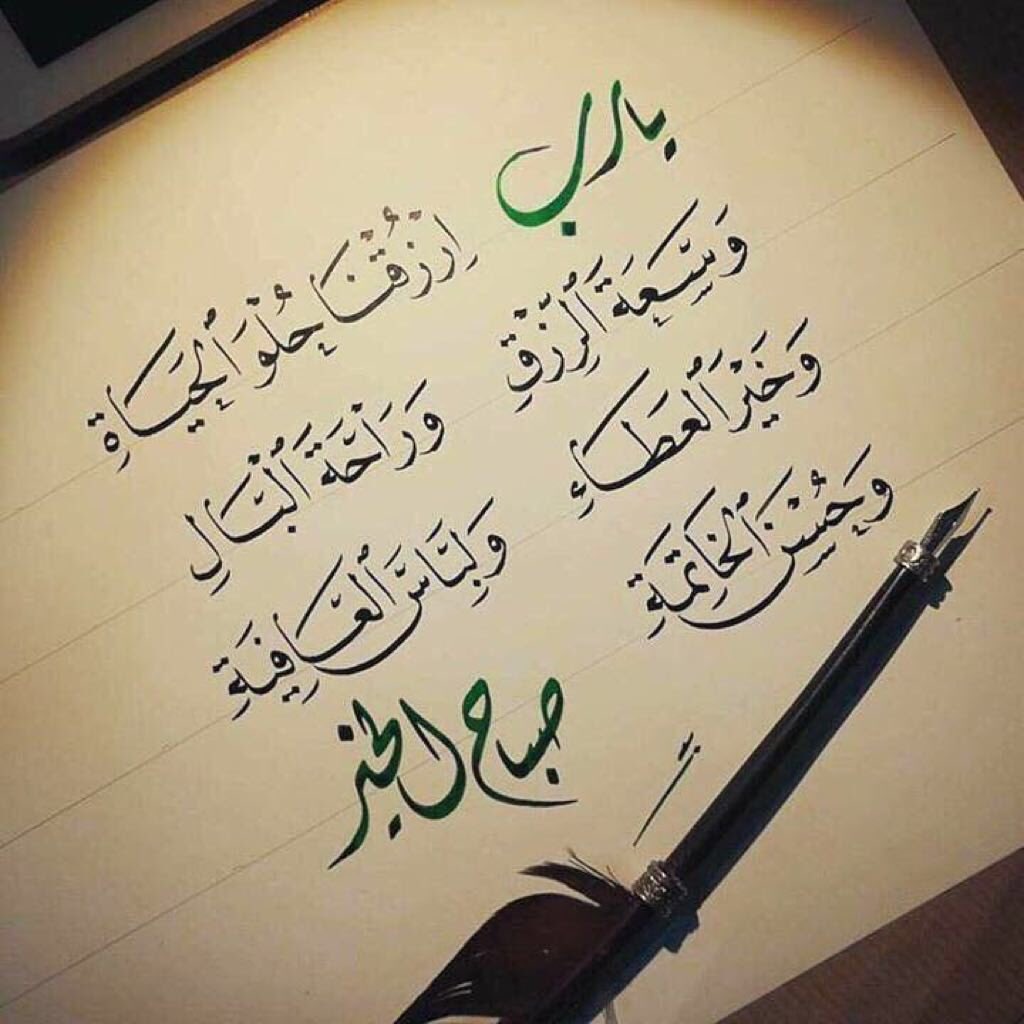 يارب
اِرْزُقْنَا حُلْوَ ٱلْحَيَاةِ
وَسَعَةَ ٱلرِّزْقِ
وَرَاحَةَ ٱلْبَالِ
وَخَيْرَ ٱلْعَطَاءِ
وَلِبَاسَ ٱلْعَافِيَةِ
وَحُسْنَ ٱلْخَاتِمَةِ
صباح الخير